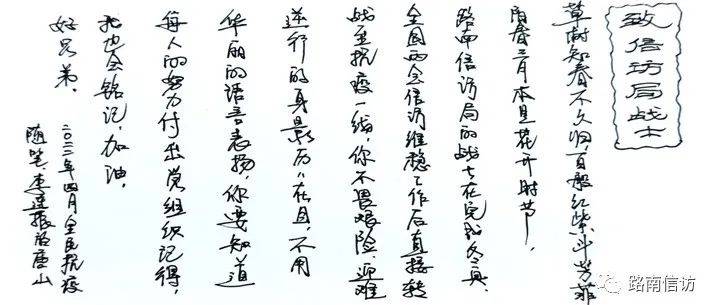 致信访局战士
草树知春不久归,百般红紫斗芳菲
阳春三月本是花开时节,
路南信访局的战士在完成冬奥、
全国两会信访维稳工作后直接转
战至抗疫一线,你不畏艰险、迎难
逆行的身影历〃在目,不用
华丽的语言表扬,你要知道
每人的努力付出党组织记得,
我也会铭记,加油,
好兄弟。
二〇二二年四月全民抗疫
随笔:李连振 唐山
路南信访